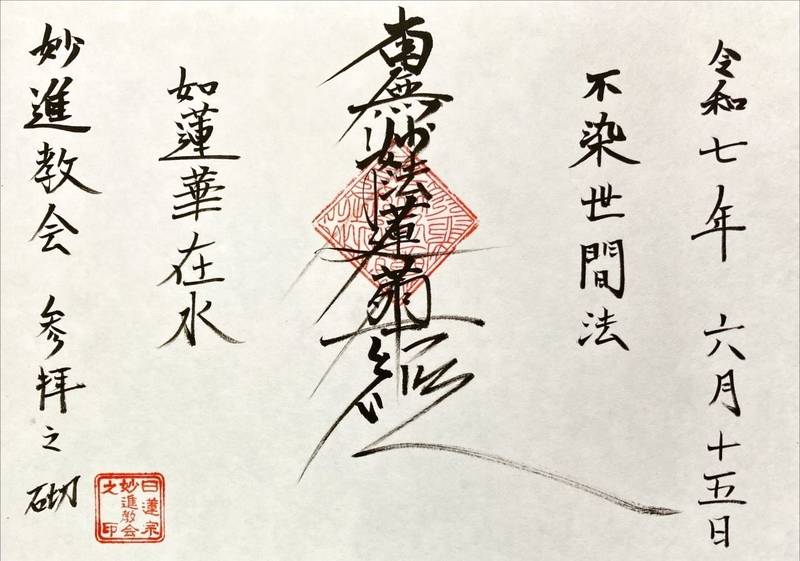 令和七年 六月十五日
不染世間法
南無妙法蓮華経
如蓮華在水
妙進教会 参拝之砌
日蓮宗
妙進教会
之印